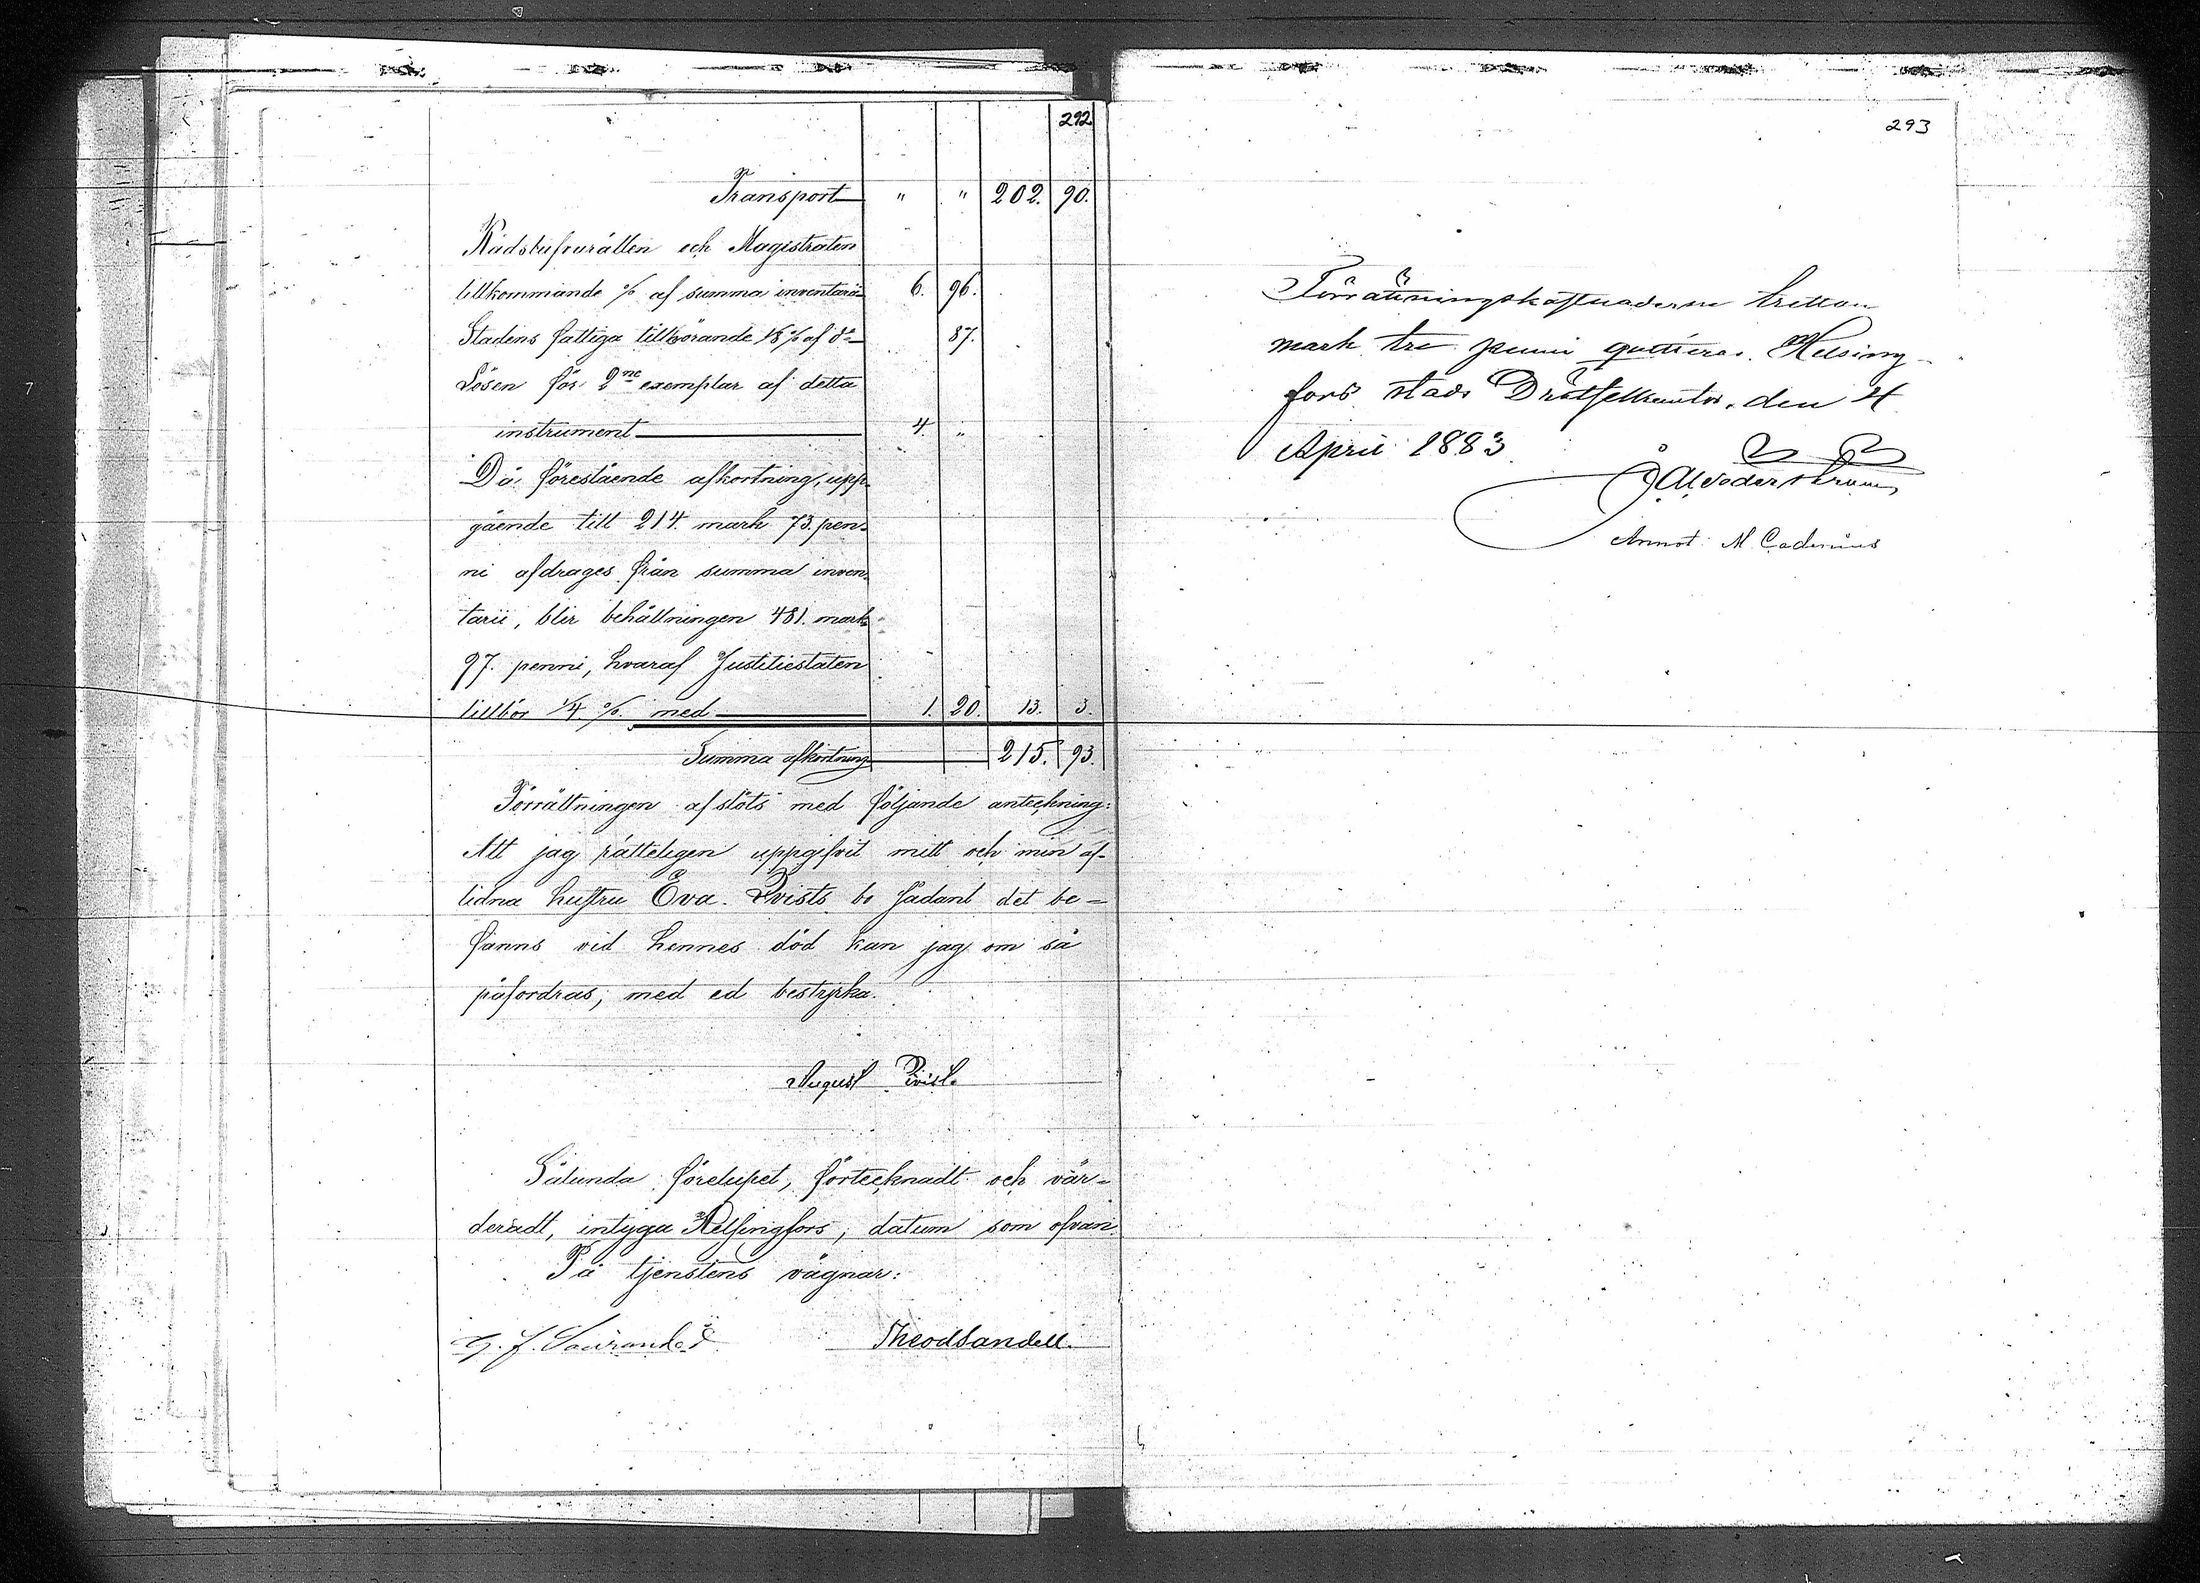 292
Transport " " 202. 90.
Rådstufvurätten och Magistraten
tillkommande % af summa inventarii 6. 96.
Stadens fattiga tillhörande 1/8 % af do 87.
Lösen för 2ne exemplar af detta
instrument 4. "
Då förestående afkortning, upp-
gående till 214. mark 73. pen-
ni afdrages från summa inven-
tarii, blir behållningen 481. mark
97. penni, hvaraf Justitiestaten
tillkör 1/4 % med 1. 20. 13. 3.
Summa afkortning 215. 93.
Förrättningen afslöts med följande anteckning:
Att jag rätteligen uppgifvit mitt och min af-
lidna hustru Eva Qvists bo sådant det be-
fanns vid hennes död kan jag om så
påfordras, med ed bestyrka.
August Qvist.
Sålunda förelupet, förtecknadt och vär-
deradt, intyga Helsingfors, datum som ofvan.
På tjenstens vägnar:
Theod Sandell.
293
Förrättningskostnaderne tretton
mark tre penni qvitteras. Helsing-
fors stads Drätselkontor, den 4
April 1883.
Annot.